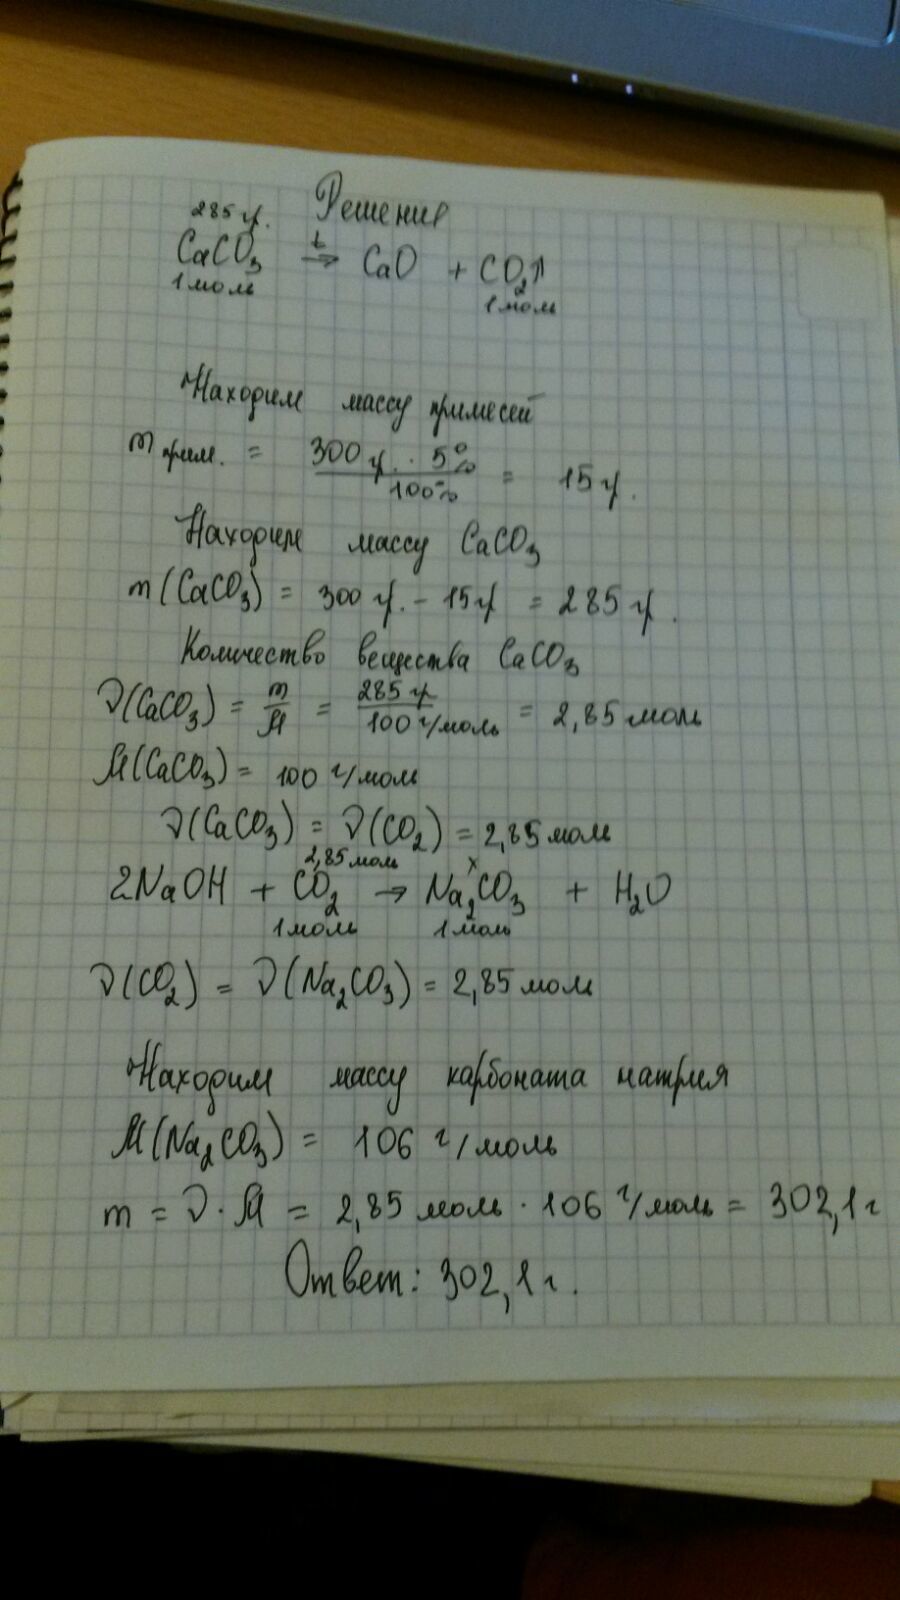 Решение
285 гр.
CaCO₃ t→ CaO + CO₂↑
1моль 1моль
Находим массу примесей
m прим. = 300 гр. · 5% / 100% = 15 гр.
Находим массу CaCO₃
m(CaCO₃) = 300 гр. - 15 гр = 285 гр.
Количество вещества CaCO₃
ν(CaCO₃) = m/M = 285 гр / 100 г/моль = 2,85 моль
M(CaCO₃) = 100 г/моль
ν(CaCO₃) = ν(CO₂) = 2,85 моль
2,85 моль x
2NaOH + CO₂ → Na₂CO₃ + H₂O
1моль 1моль
ν(CO₂) = ν(Na₂CO₃) = 2,85 моль
Находим массу карбоната натрия
M(Na₂CO₃) = 106 г/моль
m = ν · M = 2,85 моль · 106 г/моль = 302,1 г
Ответ: 302,1 г.